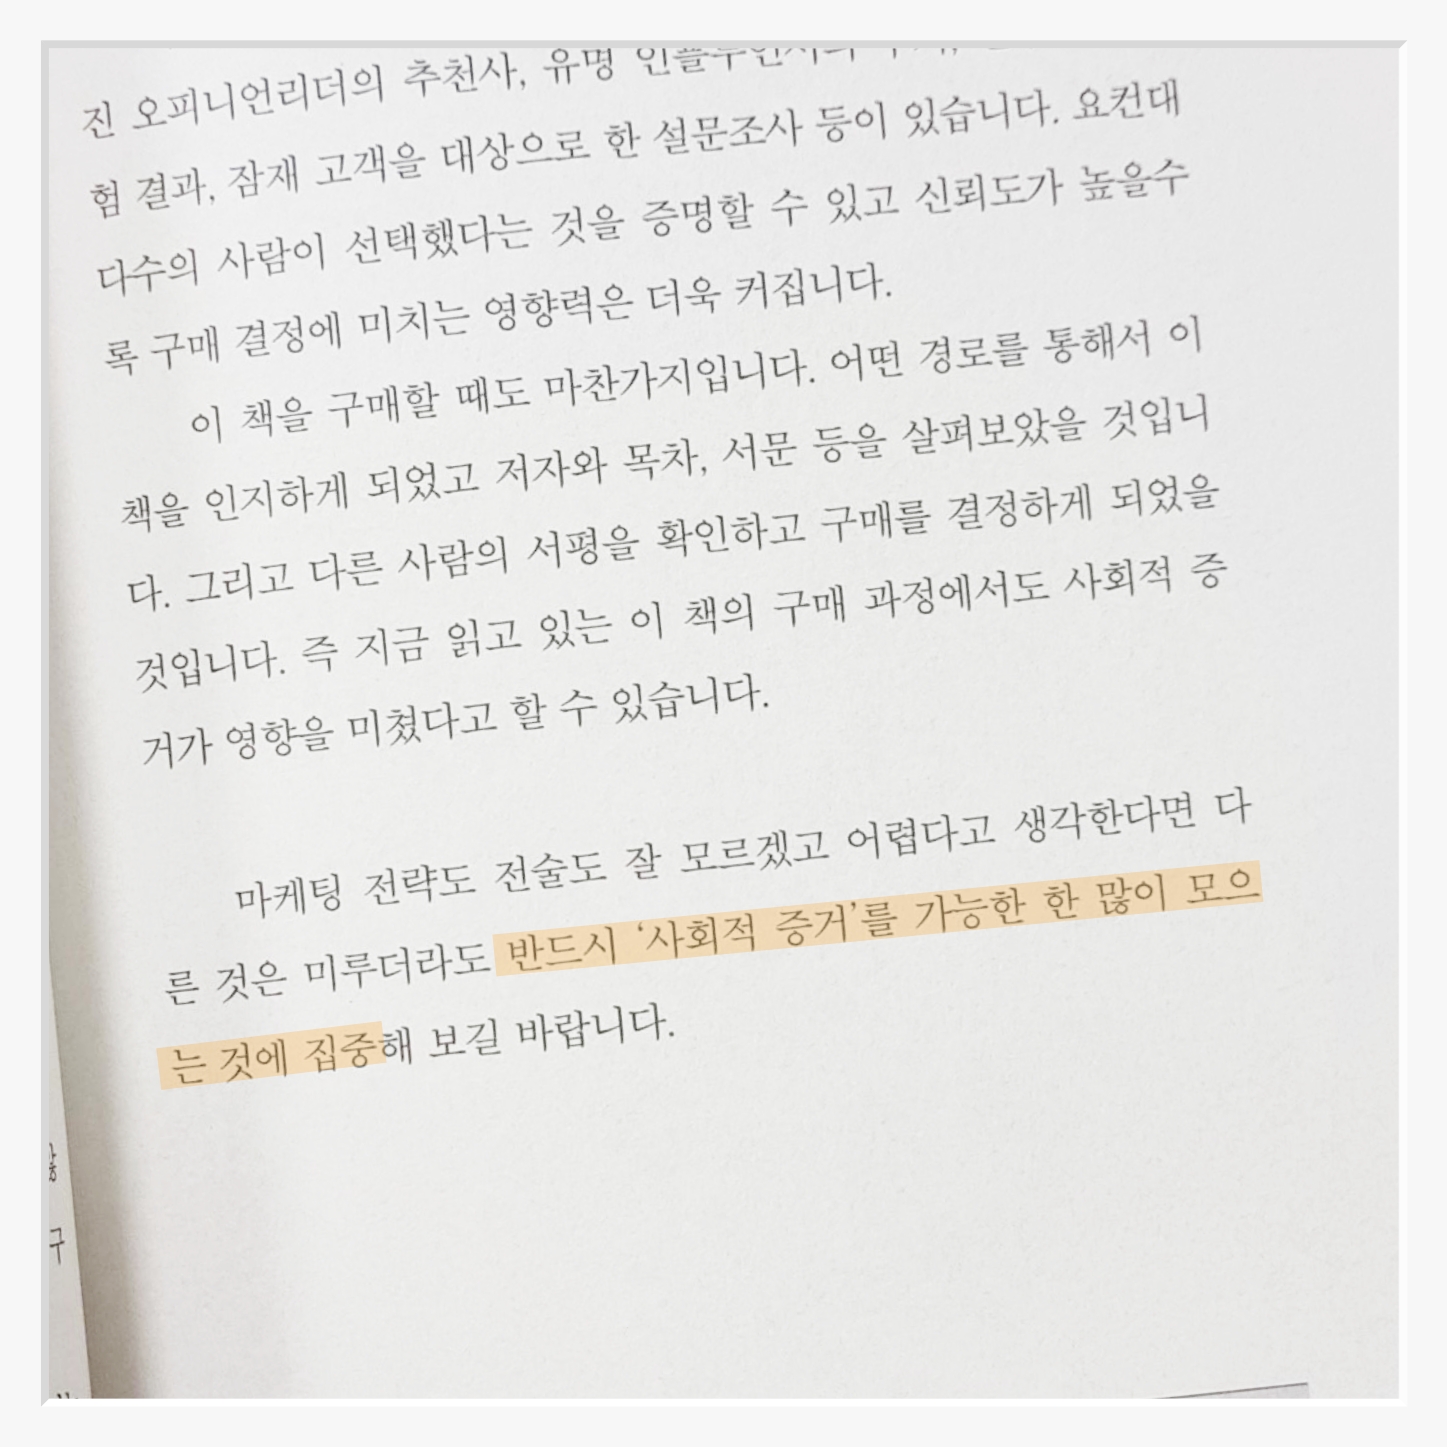 진 오피니언리더의 추천사, 유명
험 결과, 잠재 고객을 대상으로 한 설문조사 등이 있습니다. 요컨대
다수의 사람이 선택했다는 것을 증명할 수 있고 신뢰도가 높을수
록 구매 결정에 미치는 영향력은 더욱 커집니다.
이 책을 구매할 때도 마찬가지입니다. 어떤 경로를 통해서 이
책을 인지하게 되었고 저자와 목차, 서문 등을 살펴보았을 것입니
다. 그리고 다른 사람의 서평을 확인하고 구매를 결정하게 되었을
것입니다. 즉 지금 읽고 있는 이 책의 구매 과정에서도 사회적 증
거가 영향을 미쳤다고 할 수 있습니다.
마케팅 전략도 전술도 잘 모르겠고 어렵다고 생각한다면 다
른 것은 미루더라도 반드시 ‘사회적 증거’를 가능한 한 많이 모으
는 것에 집중해 보길 바랍니다.
구